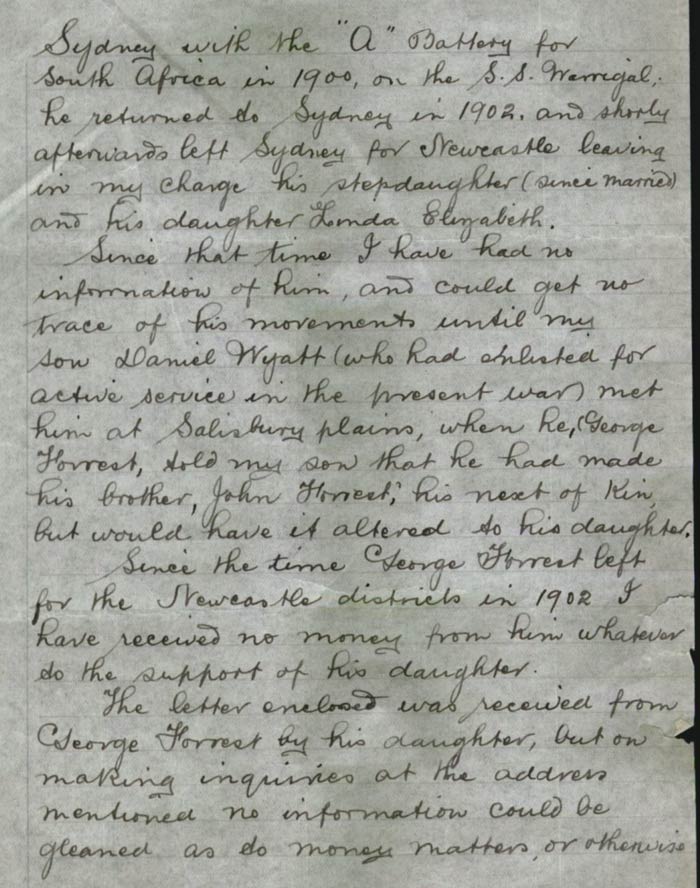 Sydney with the "A" Battery for
South Africa in 1900, on the S.S. Warrigal;
he returned to Sydney in 1902. and shorly
afterwards left Sydney for Newcastle leaving
in my charge his stepdaughter (since married)
and his daughter Linda Elizabeth.
Since that time I have had no
information of him, and could get no
trace of his movements until my
son Daniel Wyatt (who had enlisted for
active service in the present war) met
him at Salisbury plains, when he, George
Forrest, told my son that he had made
his brother, John Forrest, his next of Kin,
but would have it altered to his daughter.
Since the time George Forrest left
for the Newcastle districts in 1902 I
have received no money from him whatever
to the support of his daughter.
The letter enclosed was received from
George Forrest by his daughter, but on
making inquiries at the address
mentioned no information could be
gleaned as to money matters, or otherwise